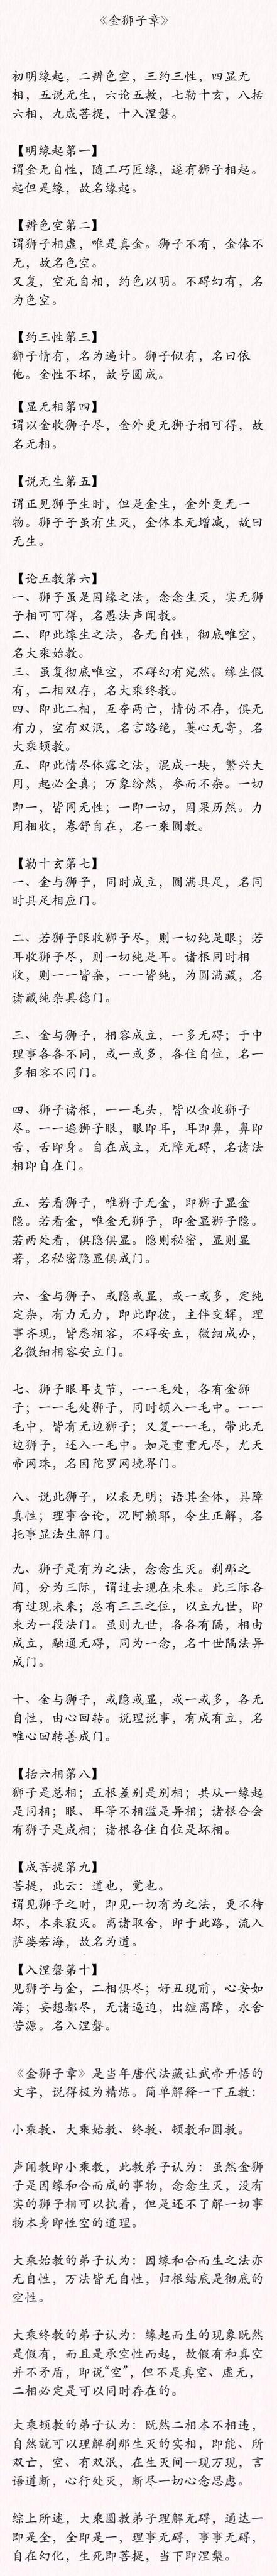 《金狮子章》
初明缘起，二辨色空，三约三性，四显无
相，五说无生，六论五教，七勒十玄，八括
六相，九成菩提，十入涅磐。
【明缘起第一】
谓金无自性，随工巧匠缘，遂有狮子相起。
起但是缘，故名缘起。
【辨色空第二】
谓狮子相虚，唯是真金。狮子不有，金体不
无，故名色空。
又复，空无自相，约色以明。不碍幻有，名
为色空。
【约三性第三】
狮子情有，名为遍计。狮子似有，名曰依
他。金性不坏，故号圆成。
【显无相第四】
谓以金收狮子尽，金外更无狮子相可得，故
名无相。
【说无生第五】
谓正见狮子生时，但是金生，金外更无一
物。狮子子虽有生灭，金体本无增减，故曰
无生。
【论五教第六】
一、狮子虽是因缘之法，念念生灭，实无狮
子相可可得，名愚法声闻教。
二、即此缘生之法，各无自性，彻底唯空，
名大乘始教。
三、虽复彻底唯空，不碍幻有宛然。缘生假
有，二相双存，名大乘终教。
四、即此二相，互夺两亡，情伪不存，俱无
有力，空有双泯，名言路绝，萋心无寄，名
大乘顿教。
五、即此情尽体露之法，混成一块，繁兴大
用，起必全真；万象纷然，参而不杂。一切
即一，皆同无性；一即一切，因果历然。力
用相收，卷舒自在，名一乘圆教。
【勒十玄第七】
一、金与狮子，同时成立，圆满具足，名同
时具足相应门。
二、若狮子眼收狮子尽，则一切纯是眼；若
耳收狮子尽，则一切纯是耳。诸根同时相
收，则一一皆杂，一一皆纯，为圆满藏，名
诸藏纯杂具德门。
三、金与狮子，相容成立，一多无碍；于中
理事各各不同，或一或多，各住自位，名一
多相容不同门。
四、狮子诸根，一一毛头，皆以金收狮子
尽。一一遍狮子眼，眼即耳，耳即鼻，鼻即
舌，舌即身。自在成立，无障无碍，名诸法
相即自在门。
五、若看狮子，唯狮子无金，即狮子显金
隐。若看金，唯金无狮子，即金显狮子隐。
若两处看，俱隐俱显。隐则秘密，显则显
著，名秘密隐显俱成门。
六、金与狮子、或隐或显，或一或多，定纯
定杂，有力无力，即此即彼，主伴交辉，理
事齐现，皆悉相容，不碍安立，微细成办，
名微细相容安立门。
七、狮子眼耳支节，一一毛处，各有金狮
子；一一毛处狮子，同时顿入一毛中。一一
毛中，皆有无边狮子；又复一一毛，带此无
边狮子，还入一毛中。如是重重无尽，尤天
帝网珠，名因陀罗网境界门。
八、说此狮子，以表无明；语其金体，具障
真性；理事合论，况阿赖耶，令生正解，名
托事显法生解门。
九、狮子是有为之法，念念生灭。刹那之
间，分为三际，谓过去现在未来。此三际各
有过现未来；总有三三之位，以立九世，即
束为一段法门。虽则九世，各各有隔，相由
成立，融通无碍，同为一念，名十世隔法异
成门。
十、金与狮子，或隐或显，或一或多，各无
自性，由心回转。说理说事，有成有立，名
唯心回转善成门。
【括六相第八】
狮子是总相；五根差别是别相；共从一缘起
是同相；眼、耳等不相滥是异相；诸根合会
有狮子是成相；诸根各住自位是坏相。
【成菩提第九】
菩提，此云：道也，觉也。
谓见狮子之时，即见一切有为之法，更不待
坏，本来寂灭。离诸取舍，即于此路，流入
萨婆若海，故名为道。
【入涅磐第十】
见狮子与金，二相俱尽；好丑现前，心安如
海；妄想都尽，无诸逼迫，出缠离障，永舍
苦源。名入涅磐。
《金狮子章》是当年唐代法藏让武帝开悟的
文字，说得极为精炼。简单解释一下五教：
小乘教、大乘始教、终教、顿教和圆教。
声闻教即小乘教，此教弟子认为：虽然金狮
子是因缘和合而成的事物，念念生灭，没有
实的狮子相可以执着，但是还不了解一切事
物本身即性空的道理。
大乘始教的弟子认为：因缘和合而生之法亦
无自性，万法皆无自性，归根结底是彻底的
空性。
大乘终教的弟子认为：缘起而生的现象既然
是假有，而且是承空性而起，故假有和真空
并不矛盾，即说“空”，但不是真空、虚无，
二相必定是可以同时存在的。
大乘顿教的弟子认为：既然二相本不相违，
自然就可以理解刹那生灭的实相，即能、所
双亡，空、有双泯，在生灭间一现万现，言
语道断，心行处灭，断尽一切心念思虑。
综上所述，大乘圆教弟子理解无碍，通达一
即是全，全即是一，理事无碍，事事无碍，
自在幻化，生死即菩提，当下即涅槃。